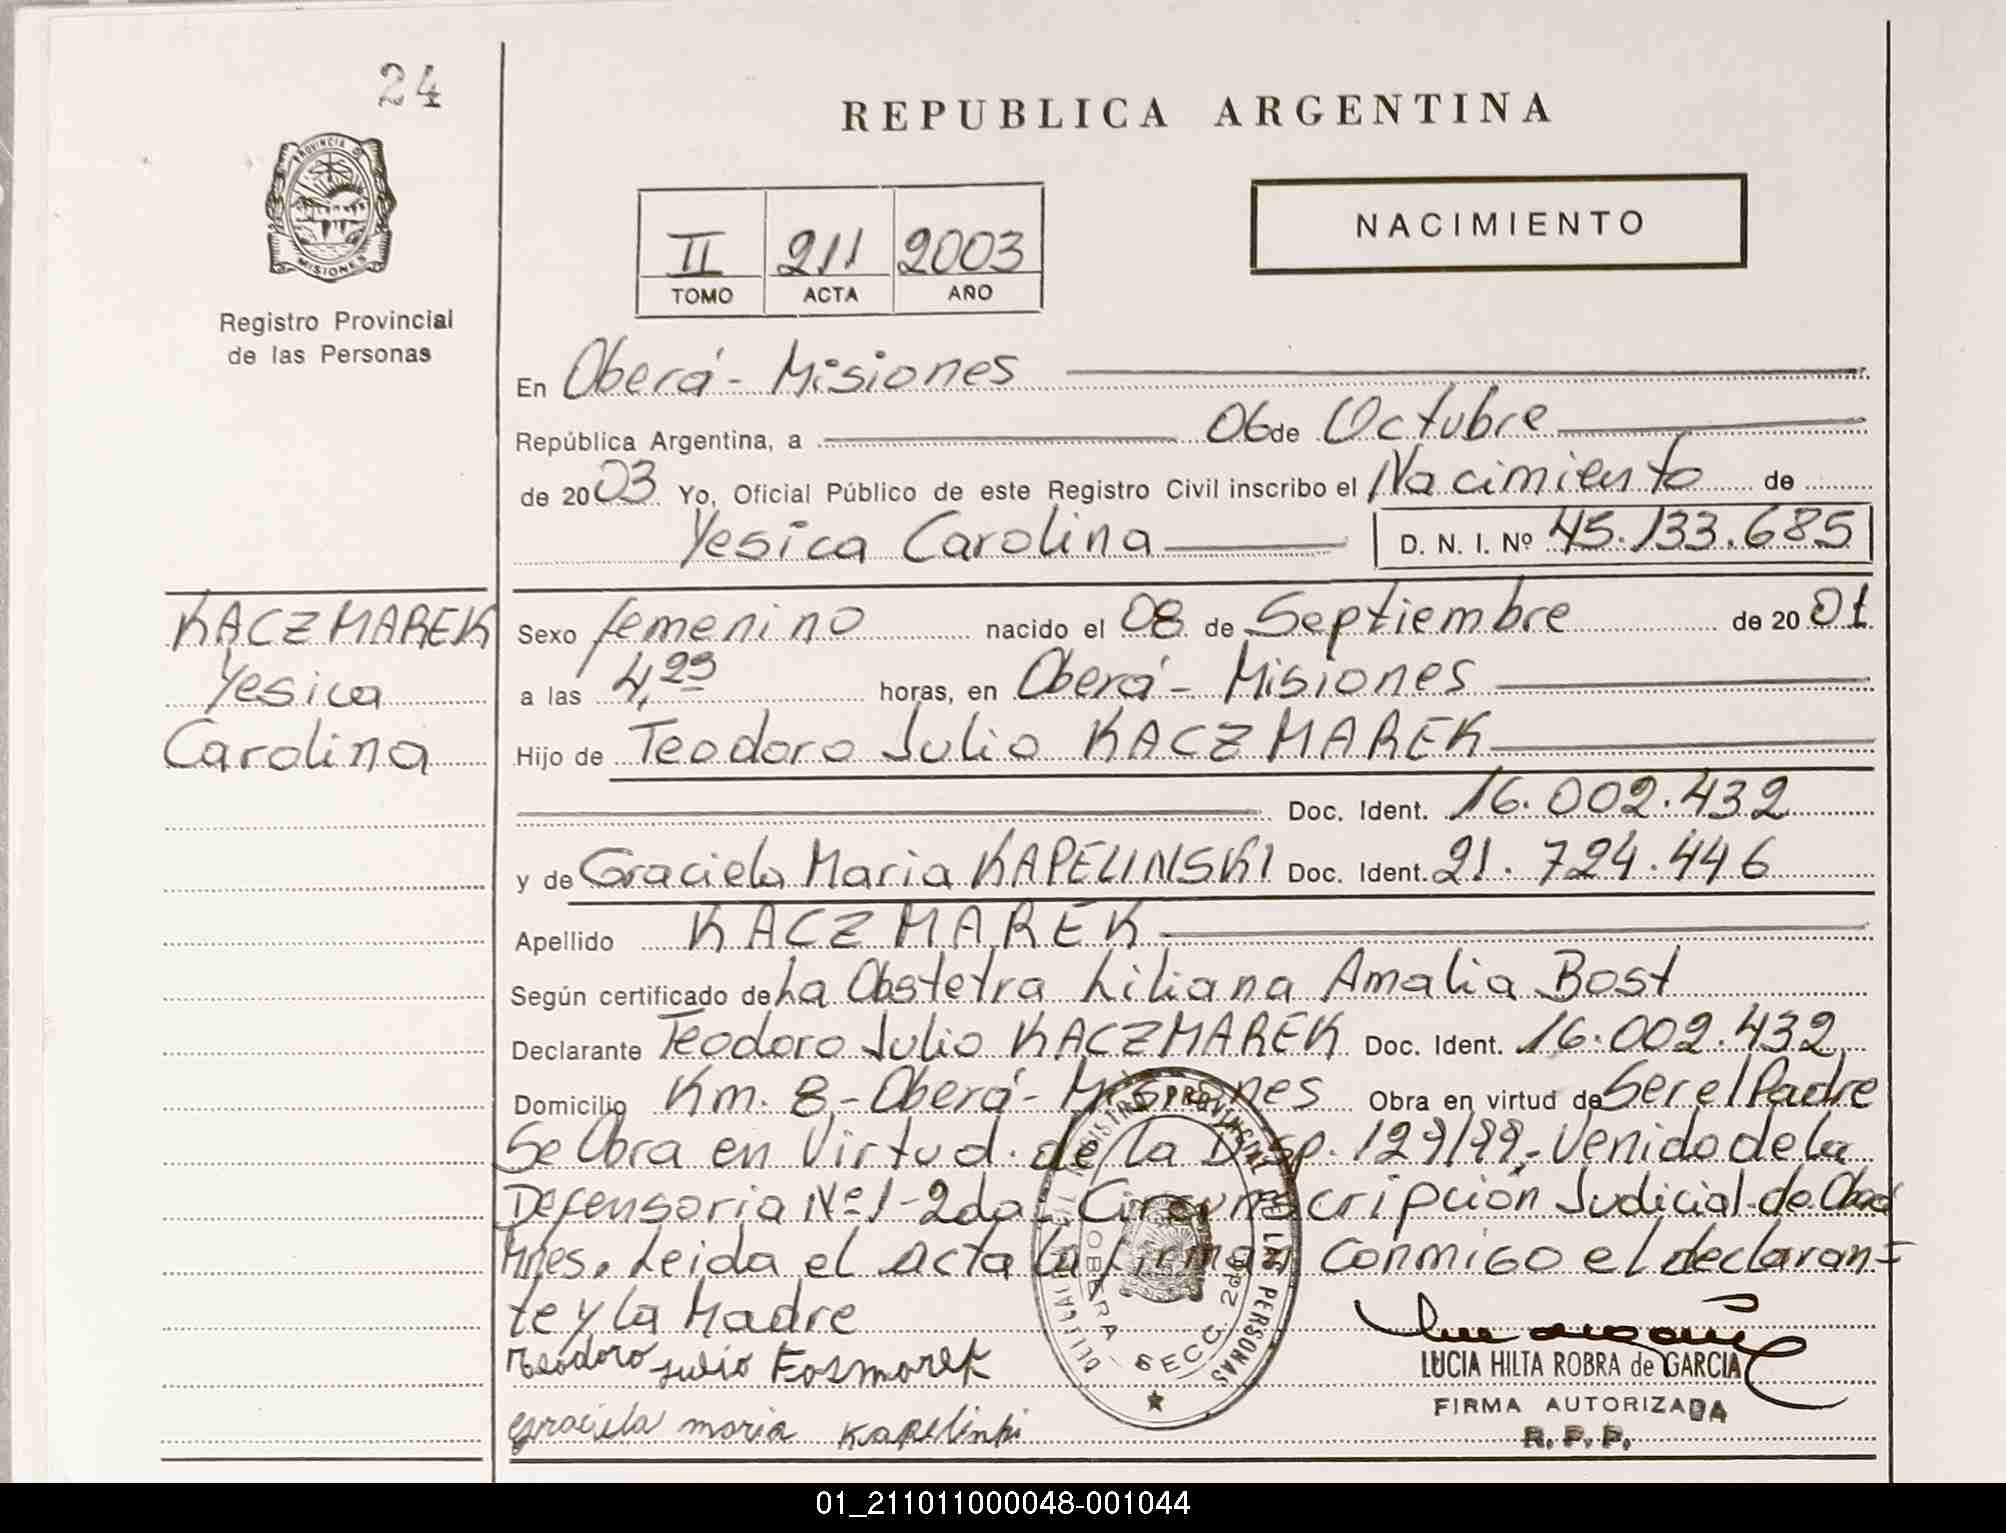 24
REPUBLICA ARGENTINA
PROVINCIA DE
MISIONES
Registro Provincial
de las Personas
II 211 2003
TOMO ACTA AÑO
NACIMIENTO
En Oberá - Misiones
República Argentina, a 06 de Octubre
de 2003 Yo, Oficial Público de este Registro Civil inscribo el Nacimiento de
Yesica Carolina D. N. I. Nº 45.133.685
KACZMAREK
Yesica
Carolina
Sexo femenino nacido el 08 de Septiembre de 2001
a las 4,23 horas, en Oberá - Misiones
Hijo de Teodoro Julio KACZMAREK
Doc. Ident. 16.002.432
y de Graciela Maria KAPELINSKI Doc. Ident. 21.724.446
Apellido KACZMAREK
Según certificado de La Obstetra Liliana Amalia Bost
Declarante Teodoro Julio KACZMAREK Doc. Ident. 16.002.432
Domicilio Km. 8 - Oberá - Misiones Obra en virtud de Ser el Padre
Se Obra en Virtud. de la Disp. 129/99,- Venido de la
Defensoria Nº 1 - 2da. Circunscripción Judicial de Oberá
Mnes. Leida el acta la firman conmigo el declaran=
te y la Madre
Teodoro Julio Kosmarek
Graciela maria Kapelinki
REGISTRO PROVINCIAL DE LAS PERSONAS
OBERA SECC. 2da
LUCIA HILTA ROBRA de GARCIA
FIRMA AUTORIZADA
R. P. P.
01_211011000048-001044